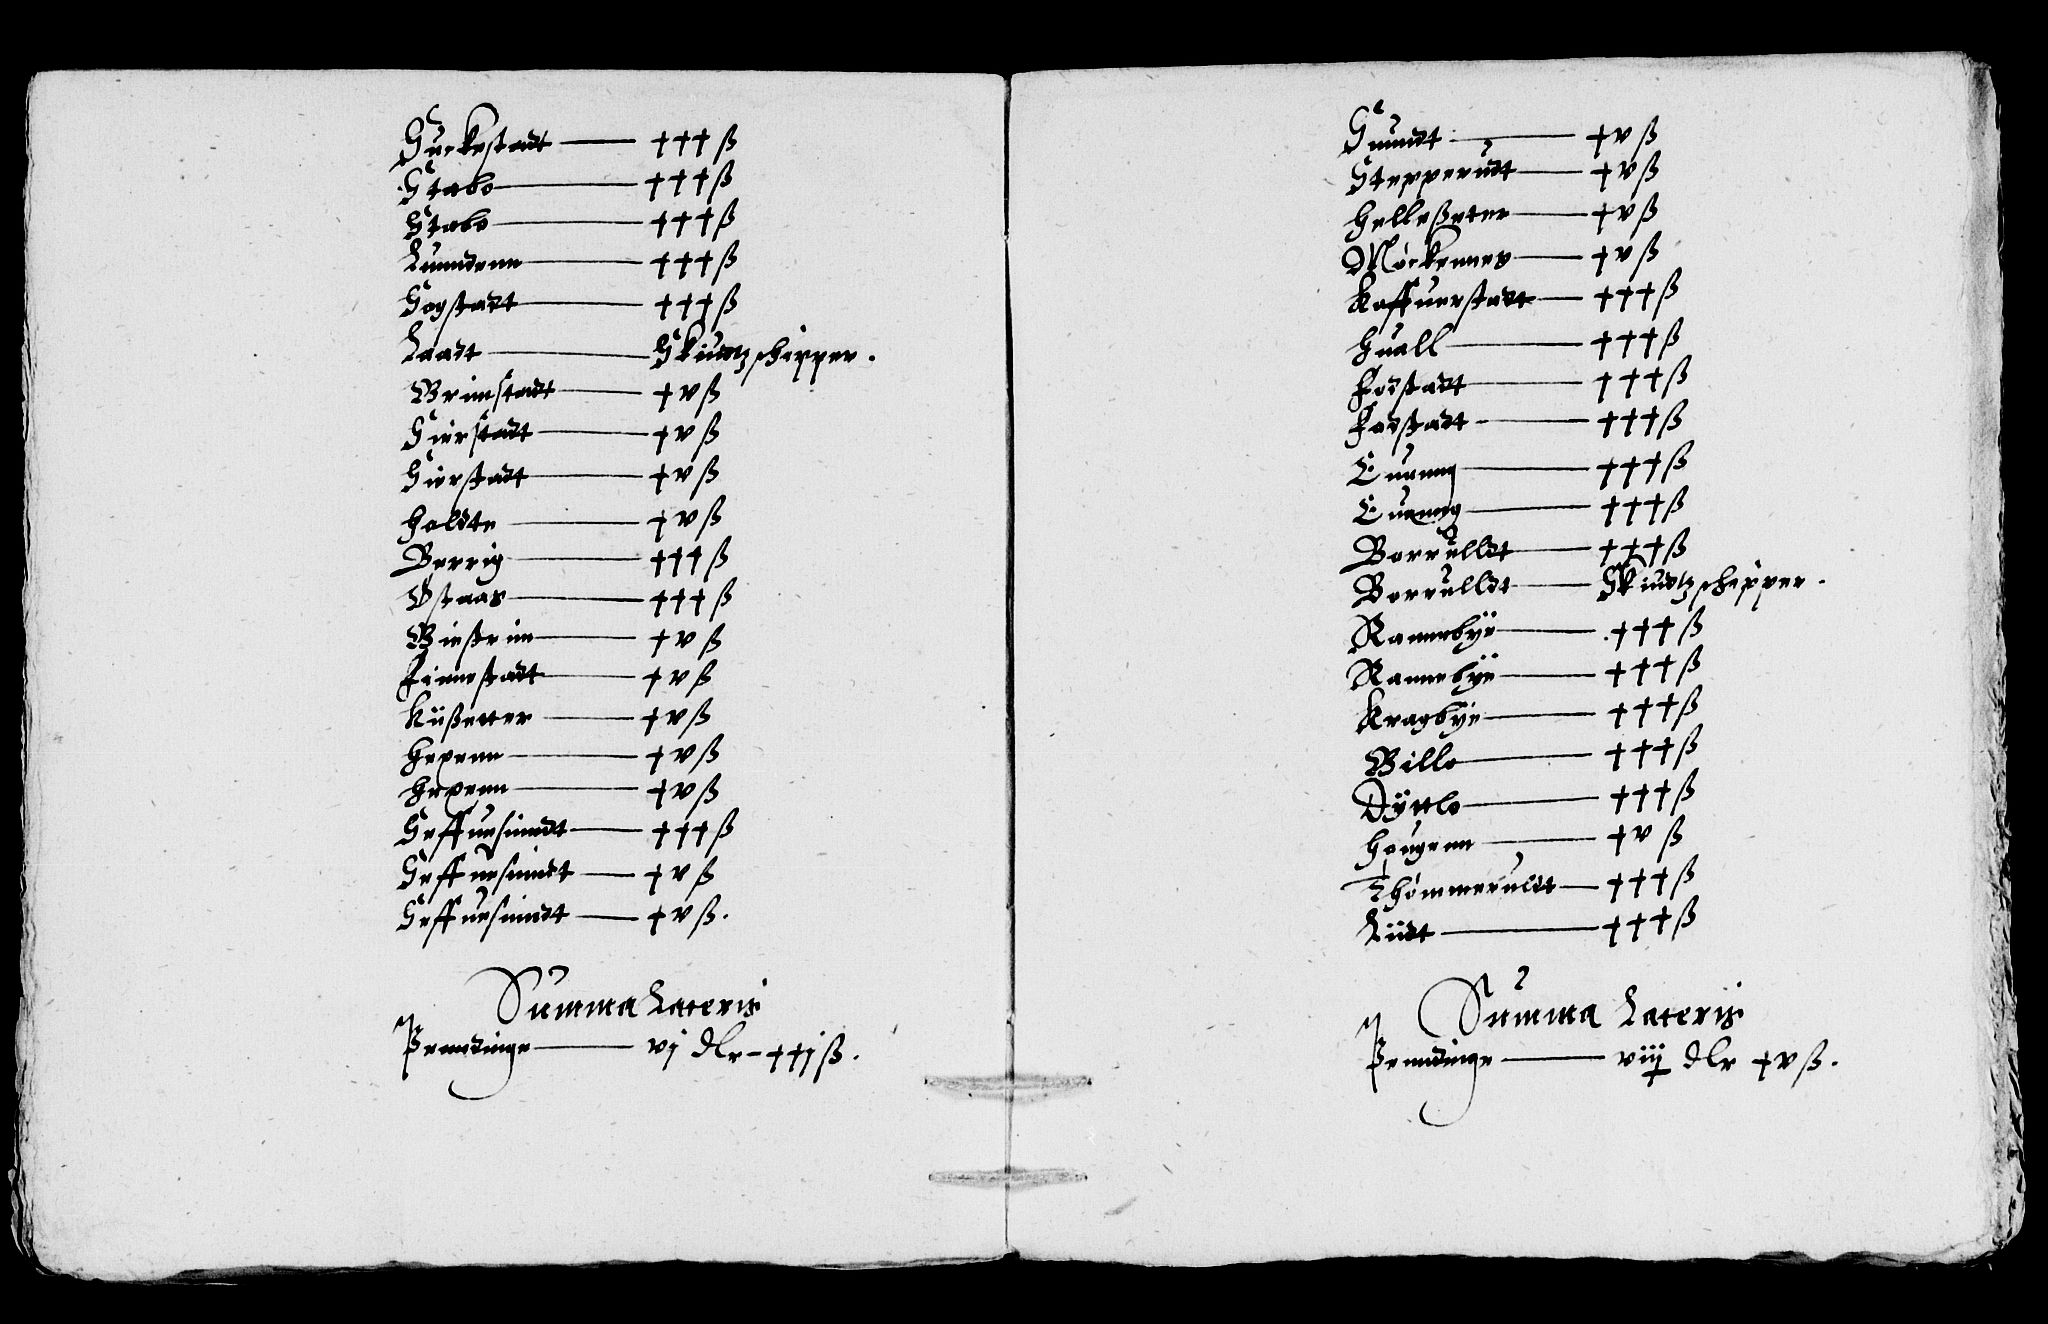 Surkestadt — xxx ß
Stabo — xxx ß
Stabo — xxx ß
Lunndenn — xxx ß
Sogstadt — xxx ß
Laadt — Skiudtzschipper.
Brimstadt — xv ß
Sierstadt — xv ß
Sierstadt — xv ß
Holdte — xv ß
Berrig — xxx ß
Østaas — xxx ß
Bießrim — xv ß
Finnestadt — xv ß
Kiißetter — xv ß
Hexenn — xv ß
Hexenn — xv ß
Seffuesundt — xxx ß
Seffuesundt — xv ß
Seffuesundt — xv ß.
Summa Lateris
Penndinge — vj dlr – xxj ß.
Sunndt — xv ß
Stepperudt — xv ß
Helleßeter — xv ß
Mørkennes — xv ß
Kaffuerstadt — xxx ß
Huall — xxx ß
Fodstadt — xxx ß
Fadstadt — xxx ß
Euenng — xxx ß
Euenng — xxx ß
Borrulldt — xxx ß
Borrulldt — Skiudtzschepper.
Rannebye — xxx ß
Rannebye — xxx ß
Kragbye — xxx ß
Billo — xxx ß
Dyttlo — xxx ß
Hougenn — xv ß
Thømmeruldt — xxx ß
Liidt — xxx ß
Summa Lateris
Penndinge — viij dlr xv ß.